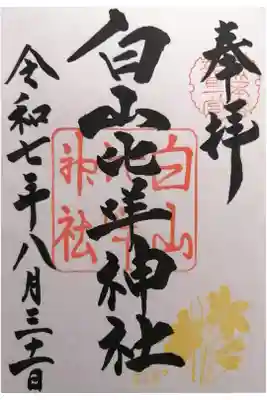 奉拝
白山比咩神社
白山
比咩
神社
令和七年八月三十一日